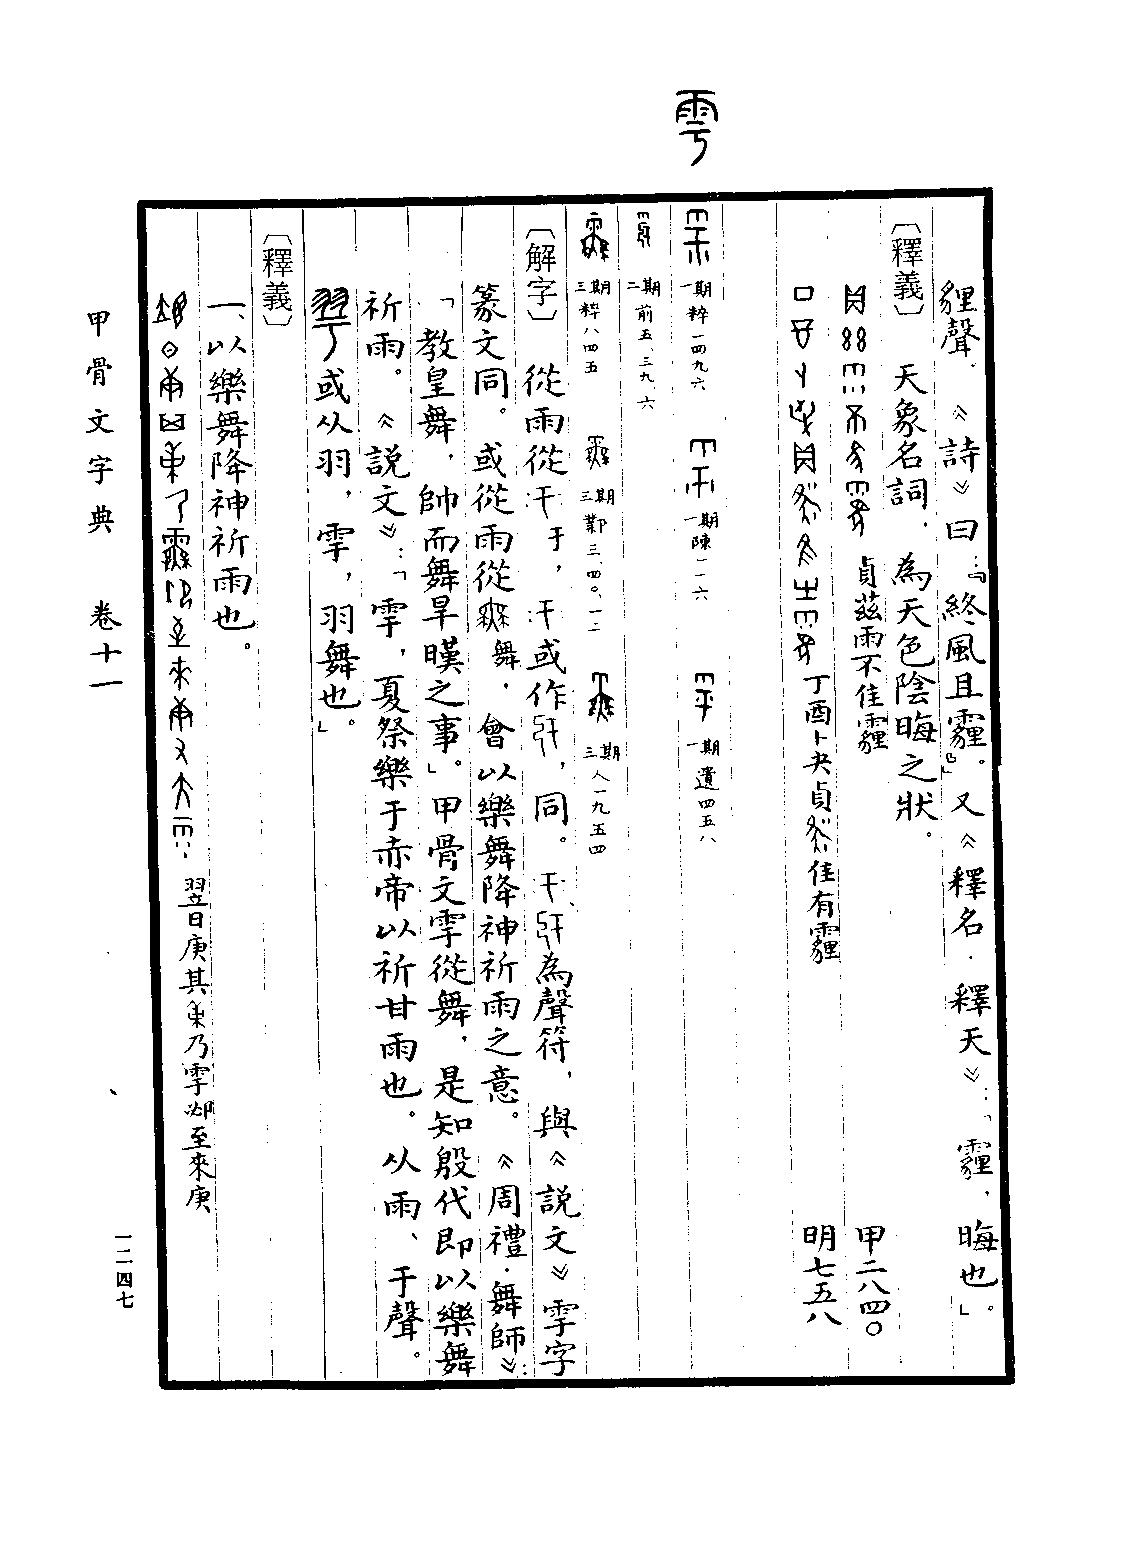 雩
貍聲。《詩》曰：「終風且霾。」又《釋名·釋天》：「霾，晦也」。
〔釋義〕 天象名詞，為天色陰晦之狀。
貞茲雨不隹霾 甲二八四〇
丁酉卜 貞 隹有霾 明七五八
一期 粹一四九六 一期 陳一一六 一期 遺四五八
二期 前五、三九、六
三期 粹八四五 三期 鄴三、四〇、一二 三期 人一九五四
〔解字〕 從雨從于，或作，同。為聲符，與《說文》雩字
篆文同。或從雨從舞，會以樂舞降神祈雨之意。《周禮·舞師》：
「教皇舞，帥而舞旱暵之事。」甲骨文雩從舞，是知殷代即以樂舞
祈雨。《說文》：「雩，夏祭樂于赤帝以祈甘雨也。从雨、于聲。
或从羽，雩，羽舞也。」
〔釋義〕
一、以樂舞降神祈雨也。
翌日庚其乃雩至來庚
甲骨文字典 卷十一
一二四七